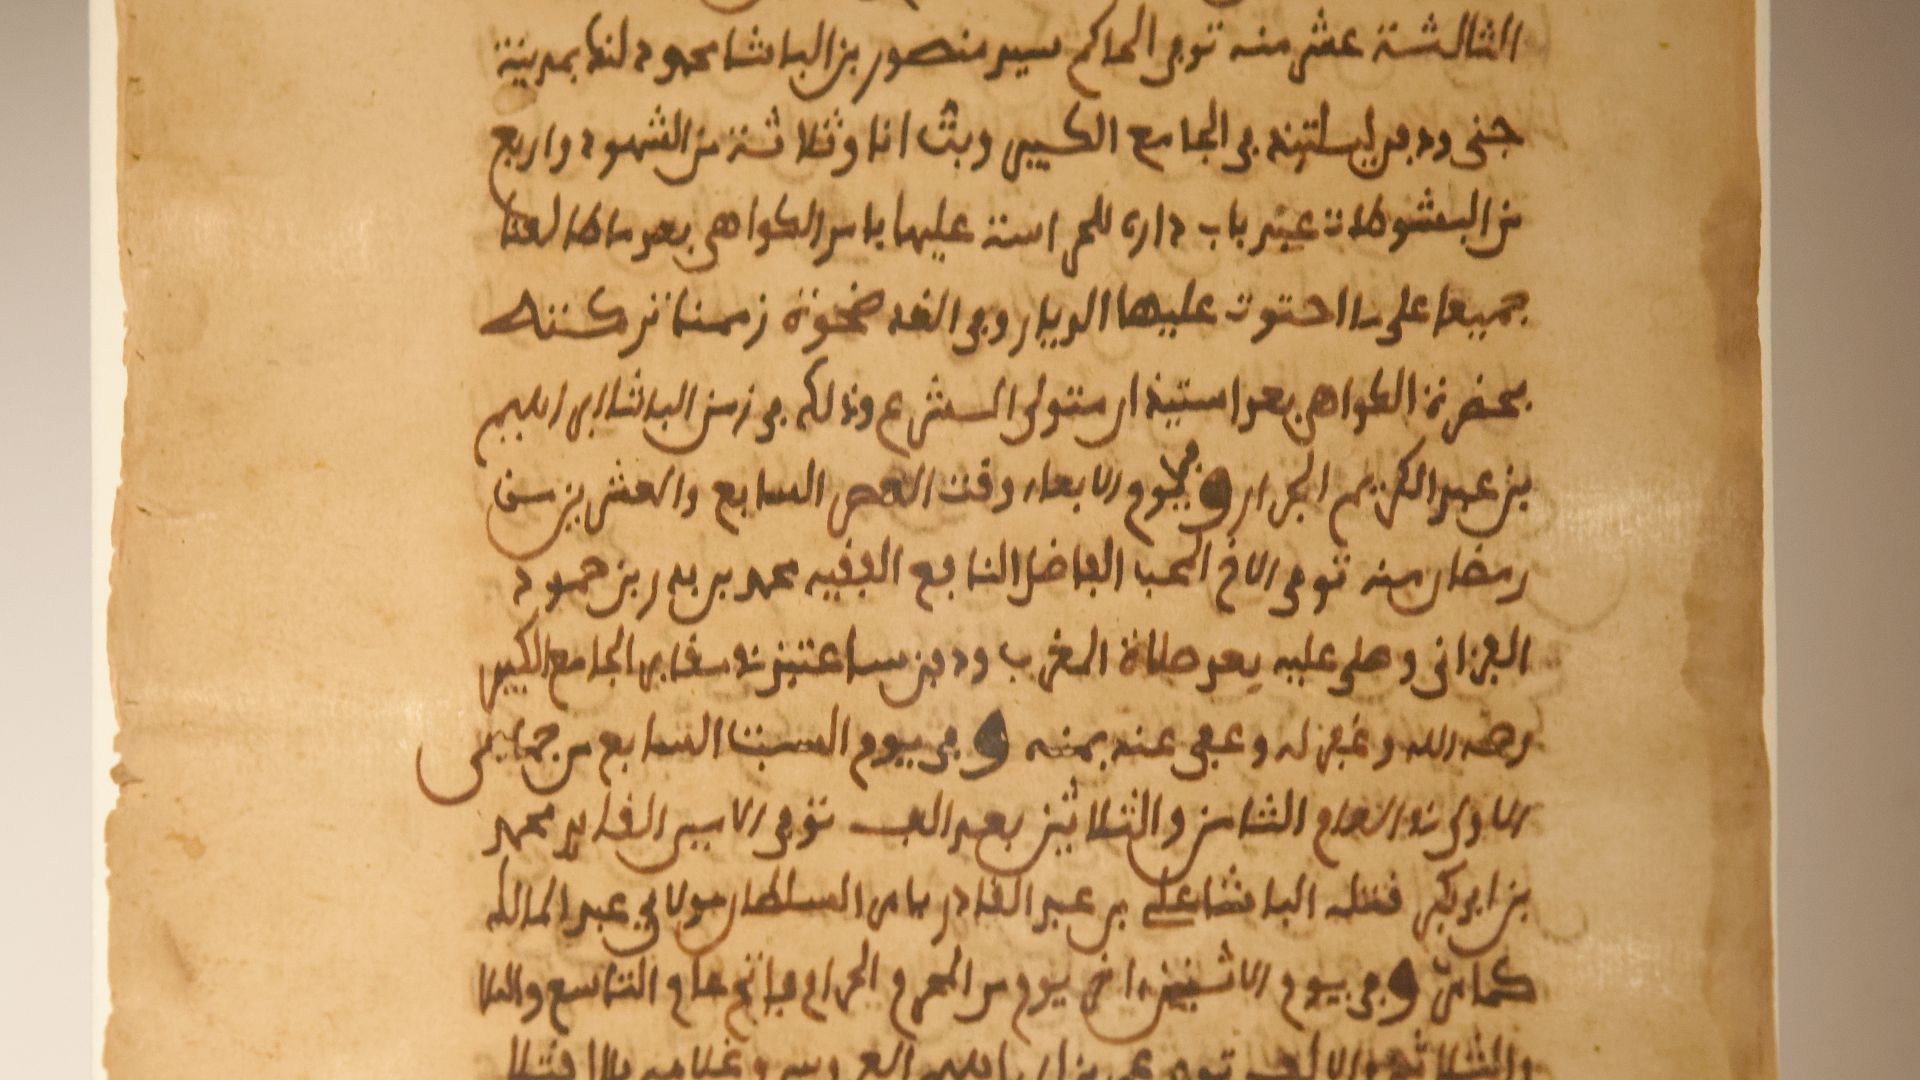 الثالثة عشر منه توفى الحاكم سيد منصور بن الباشا محمود لنك بمدينة
جنى ودفن ليلتئذ في الجامع الكبير وبت انا وثلاثة من الشهود واربع
من البشوظات عند باب داره للحراسة عليها بامر القواضى بعد ما طالعنا
جميعا على ما احتوت عليها الديار وفى الغد ضحوة زممنا تركته
بحضرة القواضى بعد استيذان متولى الشرع وذلك فى زمن الباشا ابراهيم
بن عبد الكريم الجرار وفى يوم الاربعاء وقت العصر السابع والعشرين من
رمضان منه توفى الاخ المحب الفاضل النافع الفقيه محمد بن بدر بن حمود
الفزانى وصلى عليه بعد صلاة المغرب ودفن ساعتئذ فى الجامع الكبير
رحمه الله وغفر له وعفى عنه بمنه وفى يوم السبت السابع من جمادى
الاولى فى العام الثامن والثلاثين بعد الف توفى الامير القايد محمد
بن ابى بكر قتله الباشا على بن عبد القادر بامر السلطان مولاي عبد المالك
كما مر وفى يوم الاثنين اخر يوم من المحرم الحرام فاتح عام التاسع والثلا